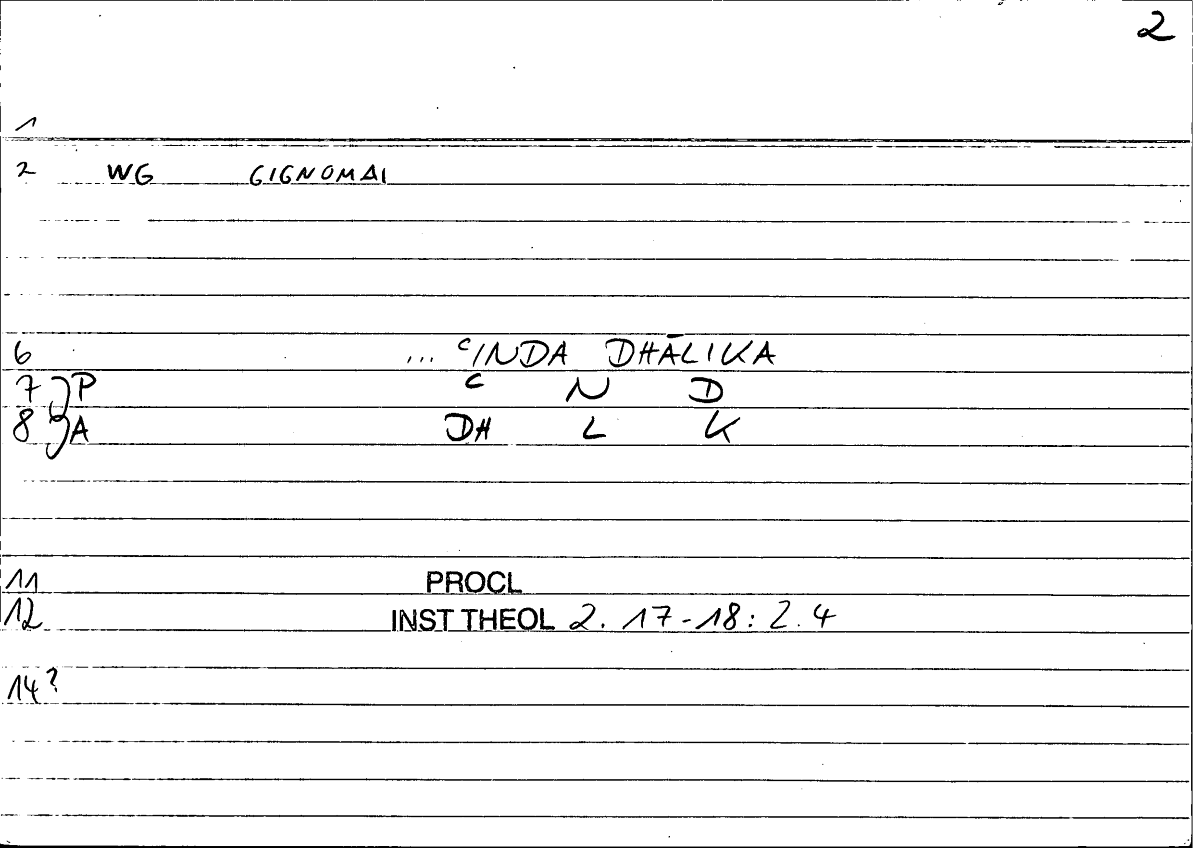 2
1
2 WG GIGNOMAI
6 ... ᶜINDA DHĀLIKA
7 } P ᶜ N D
8 } A DH L K
11 PROCL
12 INST THEOL 2. 17-18: 2.4
14?